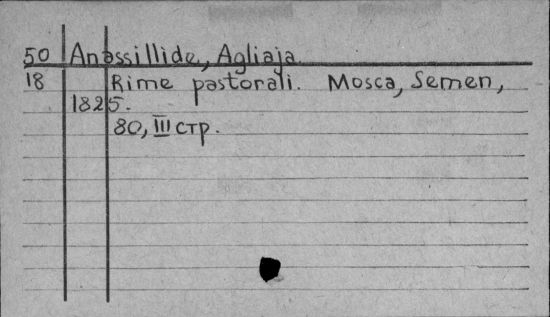 50 Anassillide, Agliaja
18 Rime pastorali. Mosca, Semen,
1825.
80, III стр.